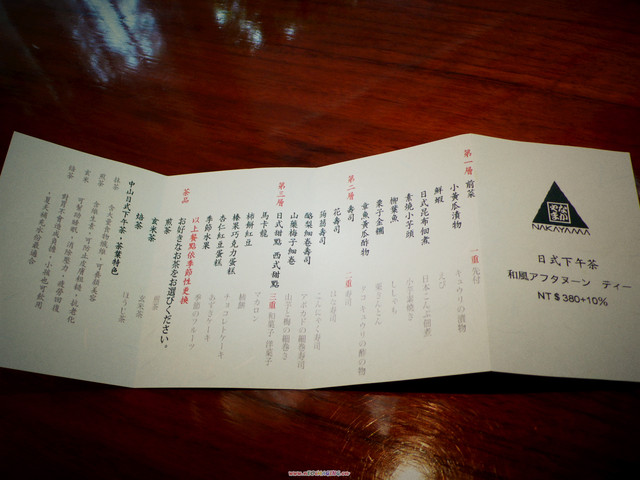 なか
やま
NAKAYAMA
日式下午茶
和風アフタヌーン ティー
NT$380+10%
第一層 前菜
小黃瓜漬物
鮮蝦
日式昆布佃煮
柳葉魚
素燒小芋頭
栗子金糰
章魚黃瓜酢物
一重 先付
キュウリの漬物
えび
日本こんぶ佃煮
ししゃも
小芋素焼き
栗きんとん
タコ、キュウリの酢の物
第二層 壽司
花壽司
蒟蒻壽司
酪梨細卷壽司
山藥梅子細卷
二重 寿司
はな寿司
こんにゃく寿司
アボカドの細巻寿司
山芋と梅の細巻き
第三層 日式甜點 西式甜點
馬卡龍
柿餅紅豆
榛果巧克力蛋糕
杏仁紅豆蛋糕
季節水果
三重 和菓子 洋菓子
マカロン
チョコレートケーキ
あずきケーキ
季節のフルーツ
以上餐點依季節性更換
お好きなお茶をお選びください。
茶品
煎茶
玄米茶
焙茶
煎茶
玄米茶
ほうじ茶
中山日式下午茶‧茶葉特色
抹茶
煎茶
玄米
焙茶